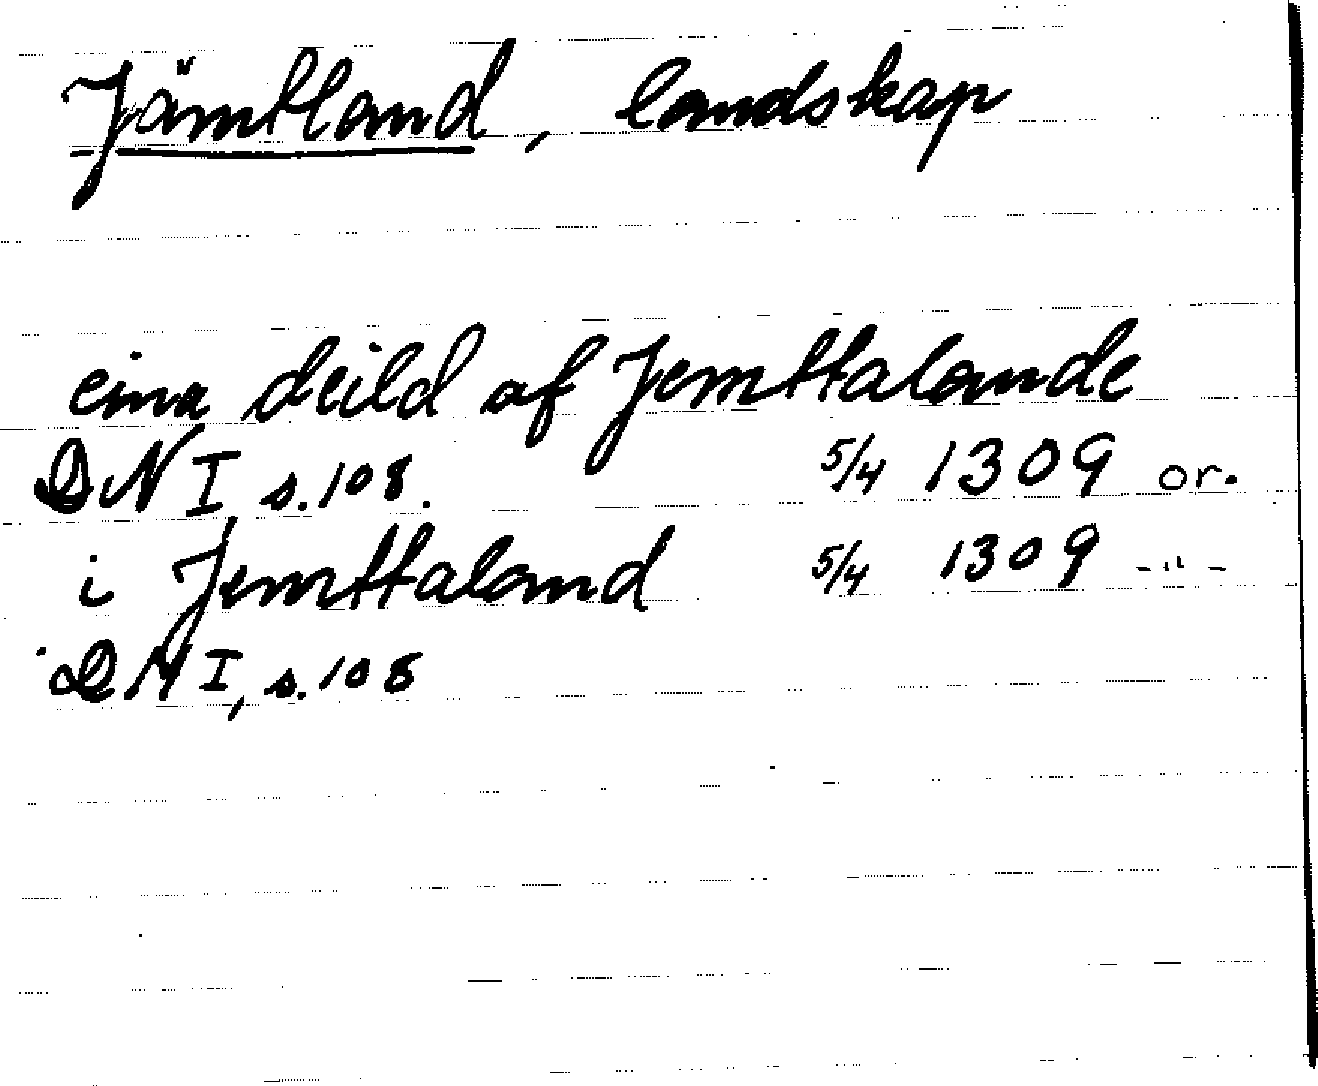 Jämtland, landskap
eina deild af Jemttalande
DN I, s. 108. 5/4 1309 or.
i Jemttaland 5/4 1309 -"-
DN I, s. 108